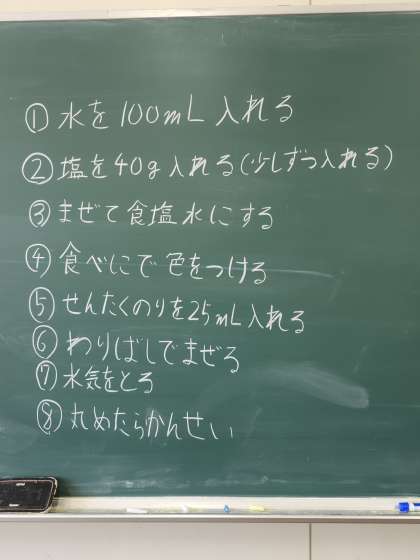 ① 水を100mL入れる
② 塩を40g入れる(少しずつ入れる)
③ まぜて食塩水にする
④ 食べにで色をつける
⑤ せんたくのりを25mL入れる
⑥ わりばしでまぜる
⑦ 水気をとる
⑧ 丸めたらかんせい